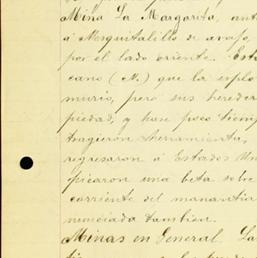 Mina La Margarita, ant
á Mesquitalillo de avajo,
por el lado oriente. Este
cano (N.) que la esplo
murió, pero sus heredér
piedad, y hase poco tiemp
tragieron herramienta,
regresaron á Estados Uni
picaron una beta sobre
corriente del manantia
nunciada tambien.
Minas en General. La